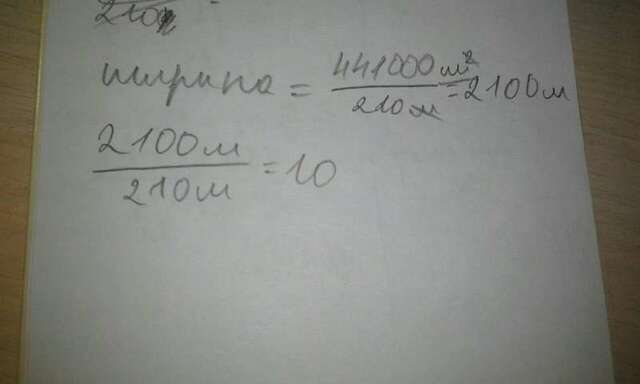 210
ширина = 441000 м² / 210 м = 2100 м
2100 м / 210 м = 10